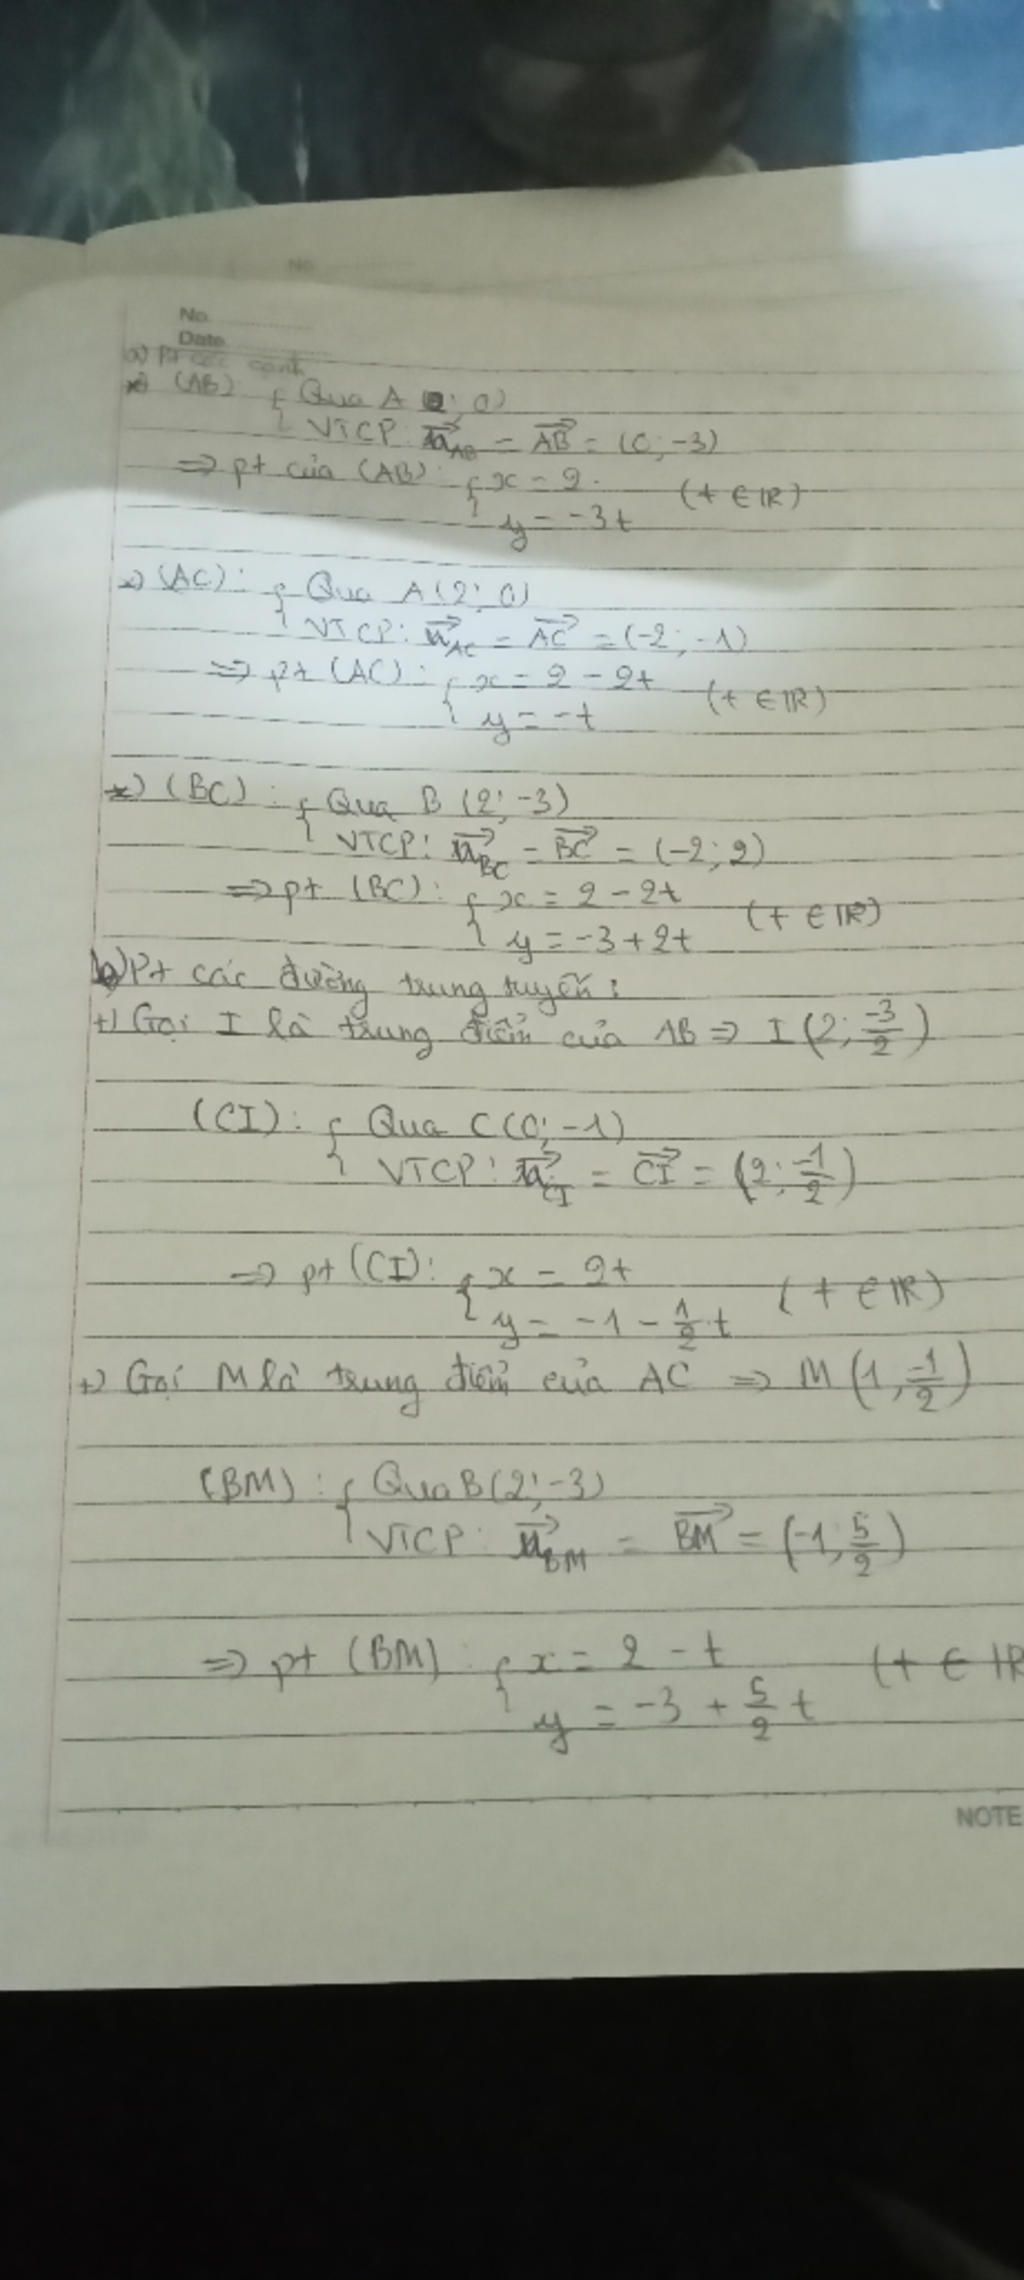 No
No.
Date
a) Pt các cạnh
*) (AB) { Qua A (2; 0)
VTCP: u⃗_AB = AB⃗ = (0; -3)
=> pt của (AB): { x = 2
y = -3t (t ∈ ℝ)
*) (AC): { Qua A(2; 0)
VTCP: u⃗_AC = AC⃗ = (-2; -1)
=> pt (AC): { x = 2 - 2t
y = -t (t ∈ ℝ)
*) (BC): { Qua B (2; -3)
VTCP: u⃗_BC = BC⃗ = (-2; 2)
=> pt (BC): { x = 2 - 2t
y = -3 + 2t (t ∈ ℝ)
b) Pt các đường trung tuyến:
+) Gọi I là trung điểm của AB => I (2; -3/2)
(CI): { Qua C(0; -1)
VTCP: u⃗_CI = CI⃗ = (2; -1/2)
=> pt (CI): { x = 2t
y = -1 - 1/2 t (t ∈ ℝ)
+) Gọi M là trung điểm của AC => M (1, -1/2)
(BM): { Qua B(2; -3)
VTCP: u⃗_BM = BM⃗ = (-1, 5/2)
=> pt (BM): { x = 2 - t
y = -3 + 5/2 t (t ∈ ℝ
NOTE